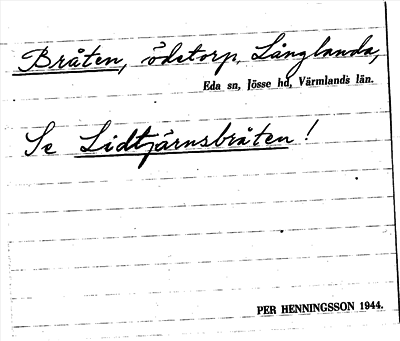 Bråten, ödetorp, Långlanda,
Eda sn, Jösse hd, Värmlands län.
Se Lidtjärnsbråten!
PER HENNINGSSON 1944.